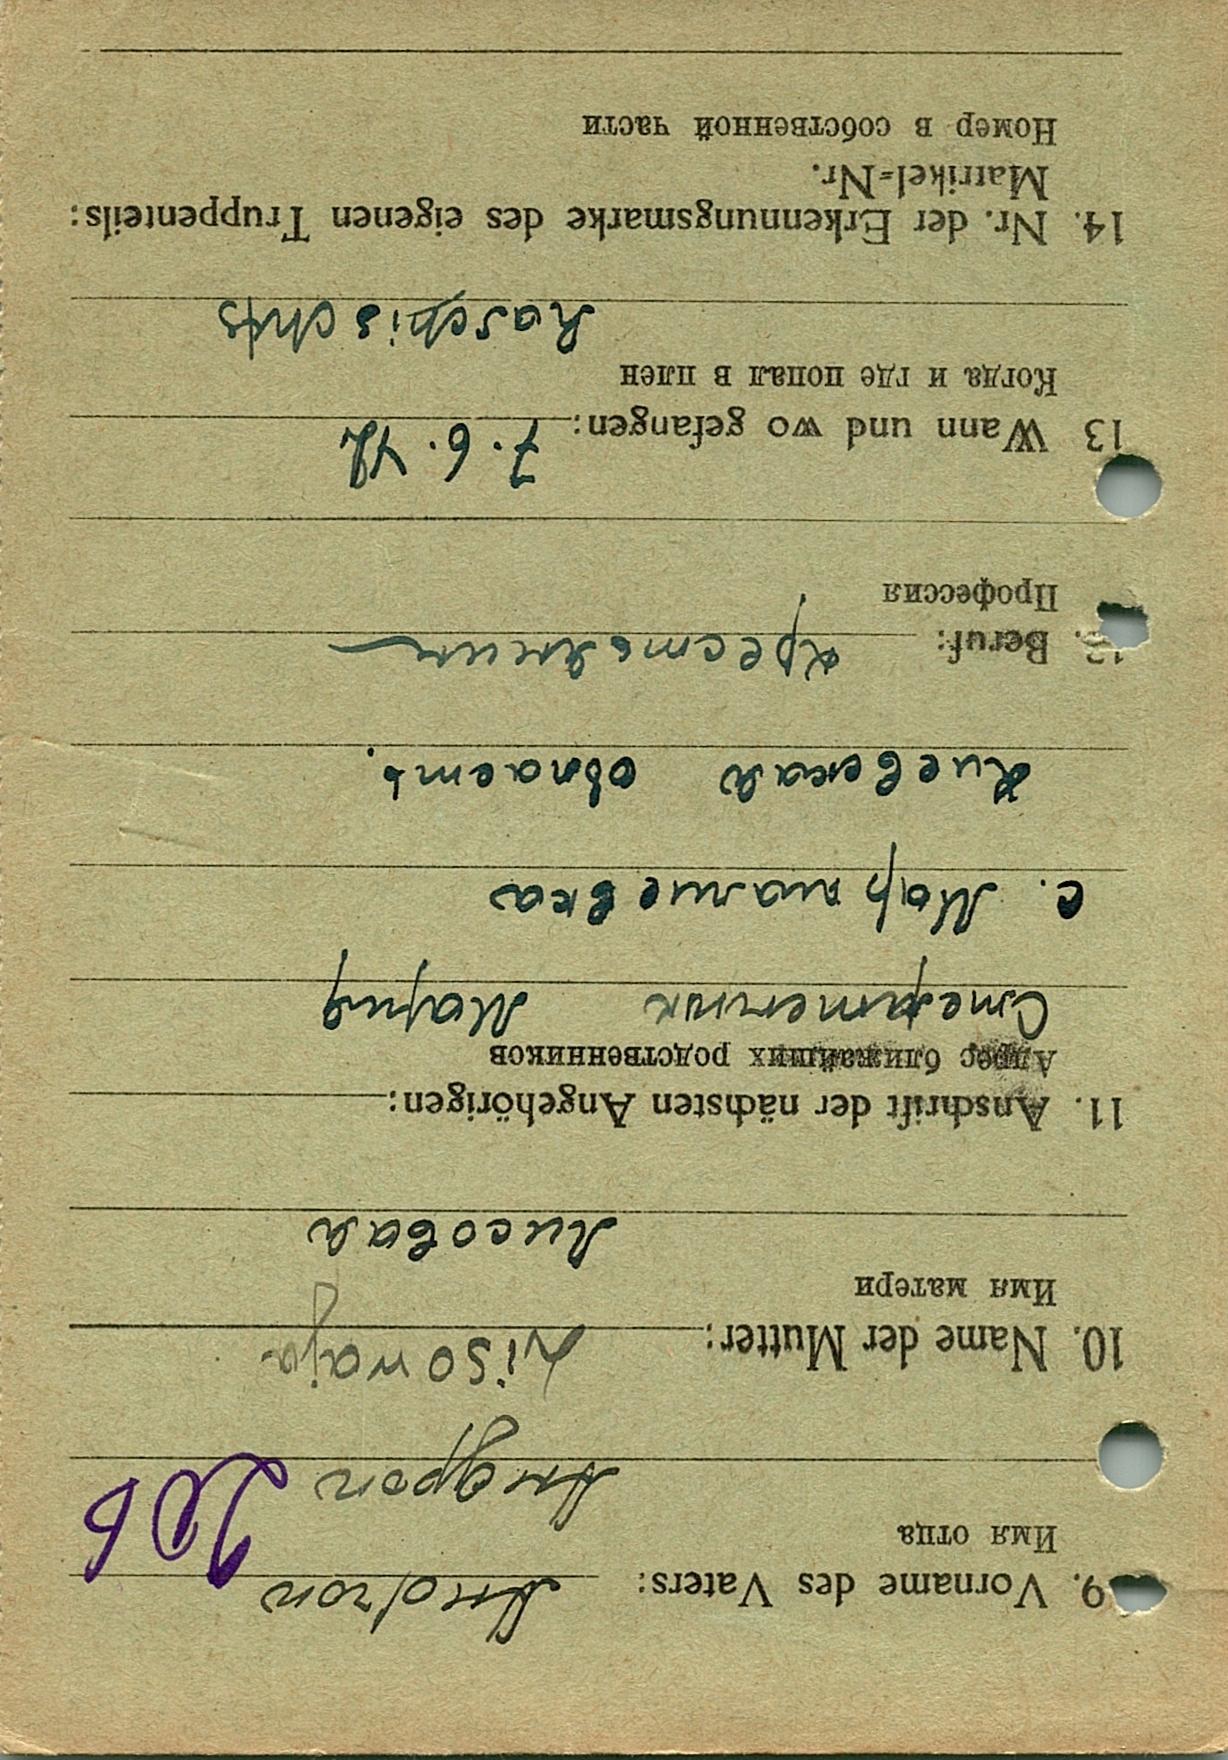 9. Vorname des Vaters: Andron
Имя отца
Андрон
10. Name der Mutter: Lisowaja
Имя матери
Лисовая
11. Anschrift der nächsten Angehörigen:
Адрес ближайших родственников
Мария
с.
Киевская область.
12. Beruf: крестьянин
Профессия
13 Wann und wo gefangen: 7.6.42
Когда и где попал в плен
14. Nr. der Erkennungsmarke des eigenen Truppenteils:
Matrikel=Nr.
Номер в собственной части